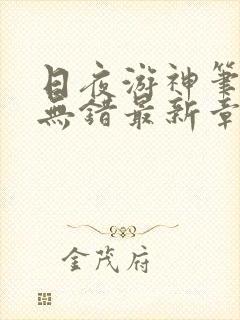 日夜游神笔
無错最新章
金茂府